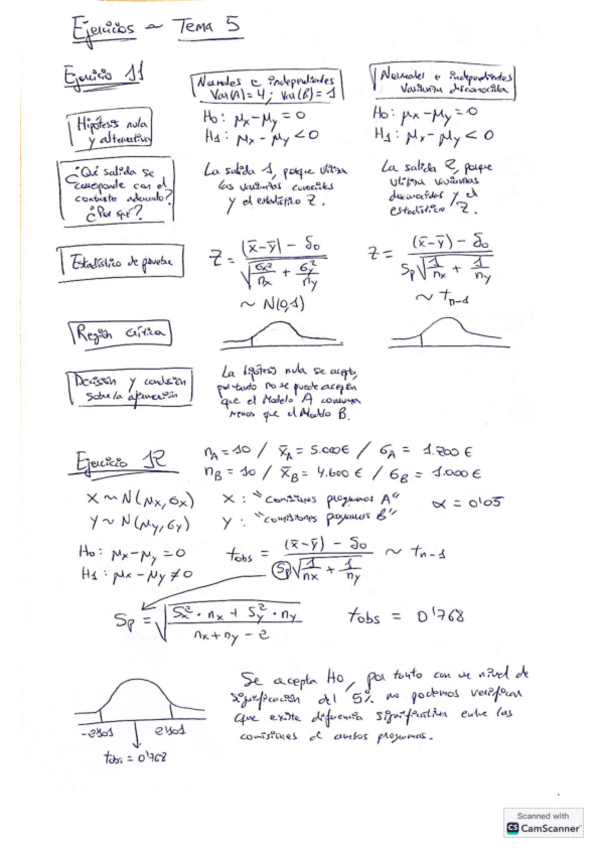 Ejercicios ~ Tema 5
Ejercicio 11
Normales e independientes
Var(A) = 4 ; Var(B) = 1
Normales e independientes
Varianza desconocida
Hipótesis nula
y alternativa
H₀: μx - μy = 0
H₁: μx - μy < 0
H₀: μx - μy = 0
H₁: μx - μy < 0
¿Qué salida se
corresponde con el
contraste adecuado?
¿Por qué?
La salida 1, porque utiliza
las varianzas conocidas
y el estadístico Z.
La salida 2, porque
utiliza varianzas
desconocidas y el
estadístico Z.
Estadístico de prueba
Z = (x̄-ȳ) - δ₀ / √(σx²/nx + σy²/ny)
~ N(0,1)
Z = (x̄-ȳ) - δ₀ / Sp√(1/nx + 1/ny)
~ tn-1
Región crítica
Decisión y conclusión
sobre la afirmación
La hipótesis nula se acepta,
por tanto no se puede aceptar
que el Modelo A consuma
menos que el Modelo B.
Ejercicio 12
nA = 10 / x̄A = 5.000€ / σA = 1.200 €
nB = 10 / x̄B = 4.600 € / σB = 1.000 €
X ~ N(μx, σx)
X : "comisiones programas A"
α = 0'05
Y ~ N(μy, σy)
Y : "comisiones programas B"
H₀: μx - μy = 0
H₁: μx - μy ≠ 0
tobs = (x̄-ȳ) - δ₀ / Sp√(1/nx + 1/ny) ~ tn-1
Sp = √(Sx² · nx + Sy² · ny / nx + ny - 2)
tobs = 0'768
Se acepta H₀, por tanto con un nivel de
significación del 5% no podemos verificar
que existe diferencia significativa entre las
comisiones de ambos programas.
-2'101 2'101
tobs = 0'768
Scanned with
CS CamScanner